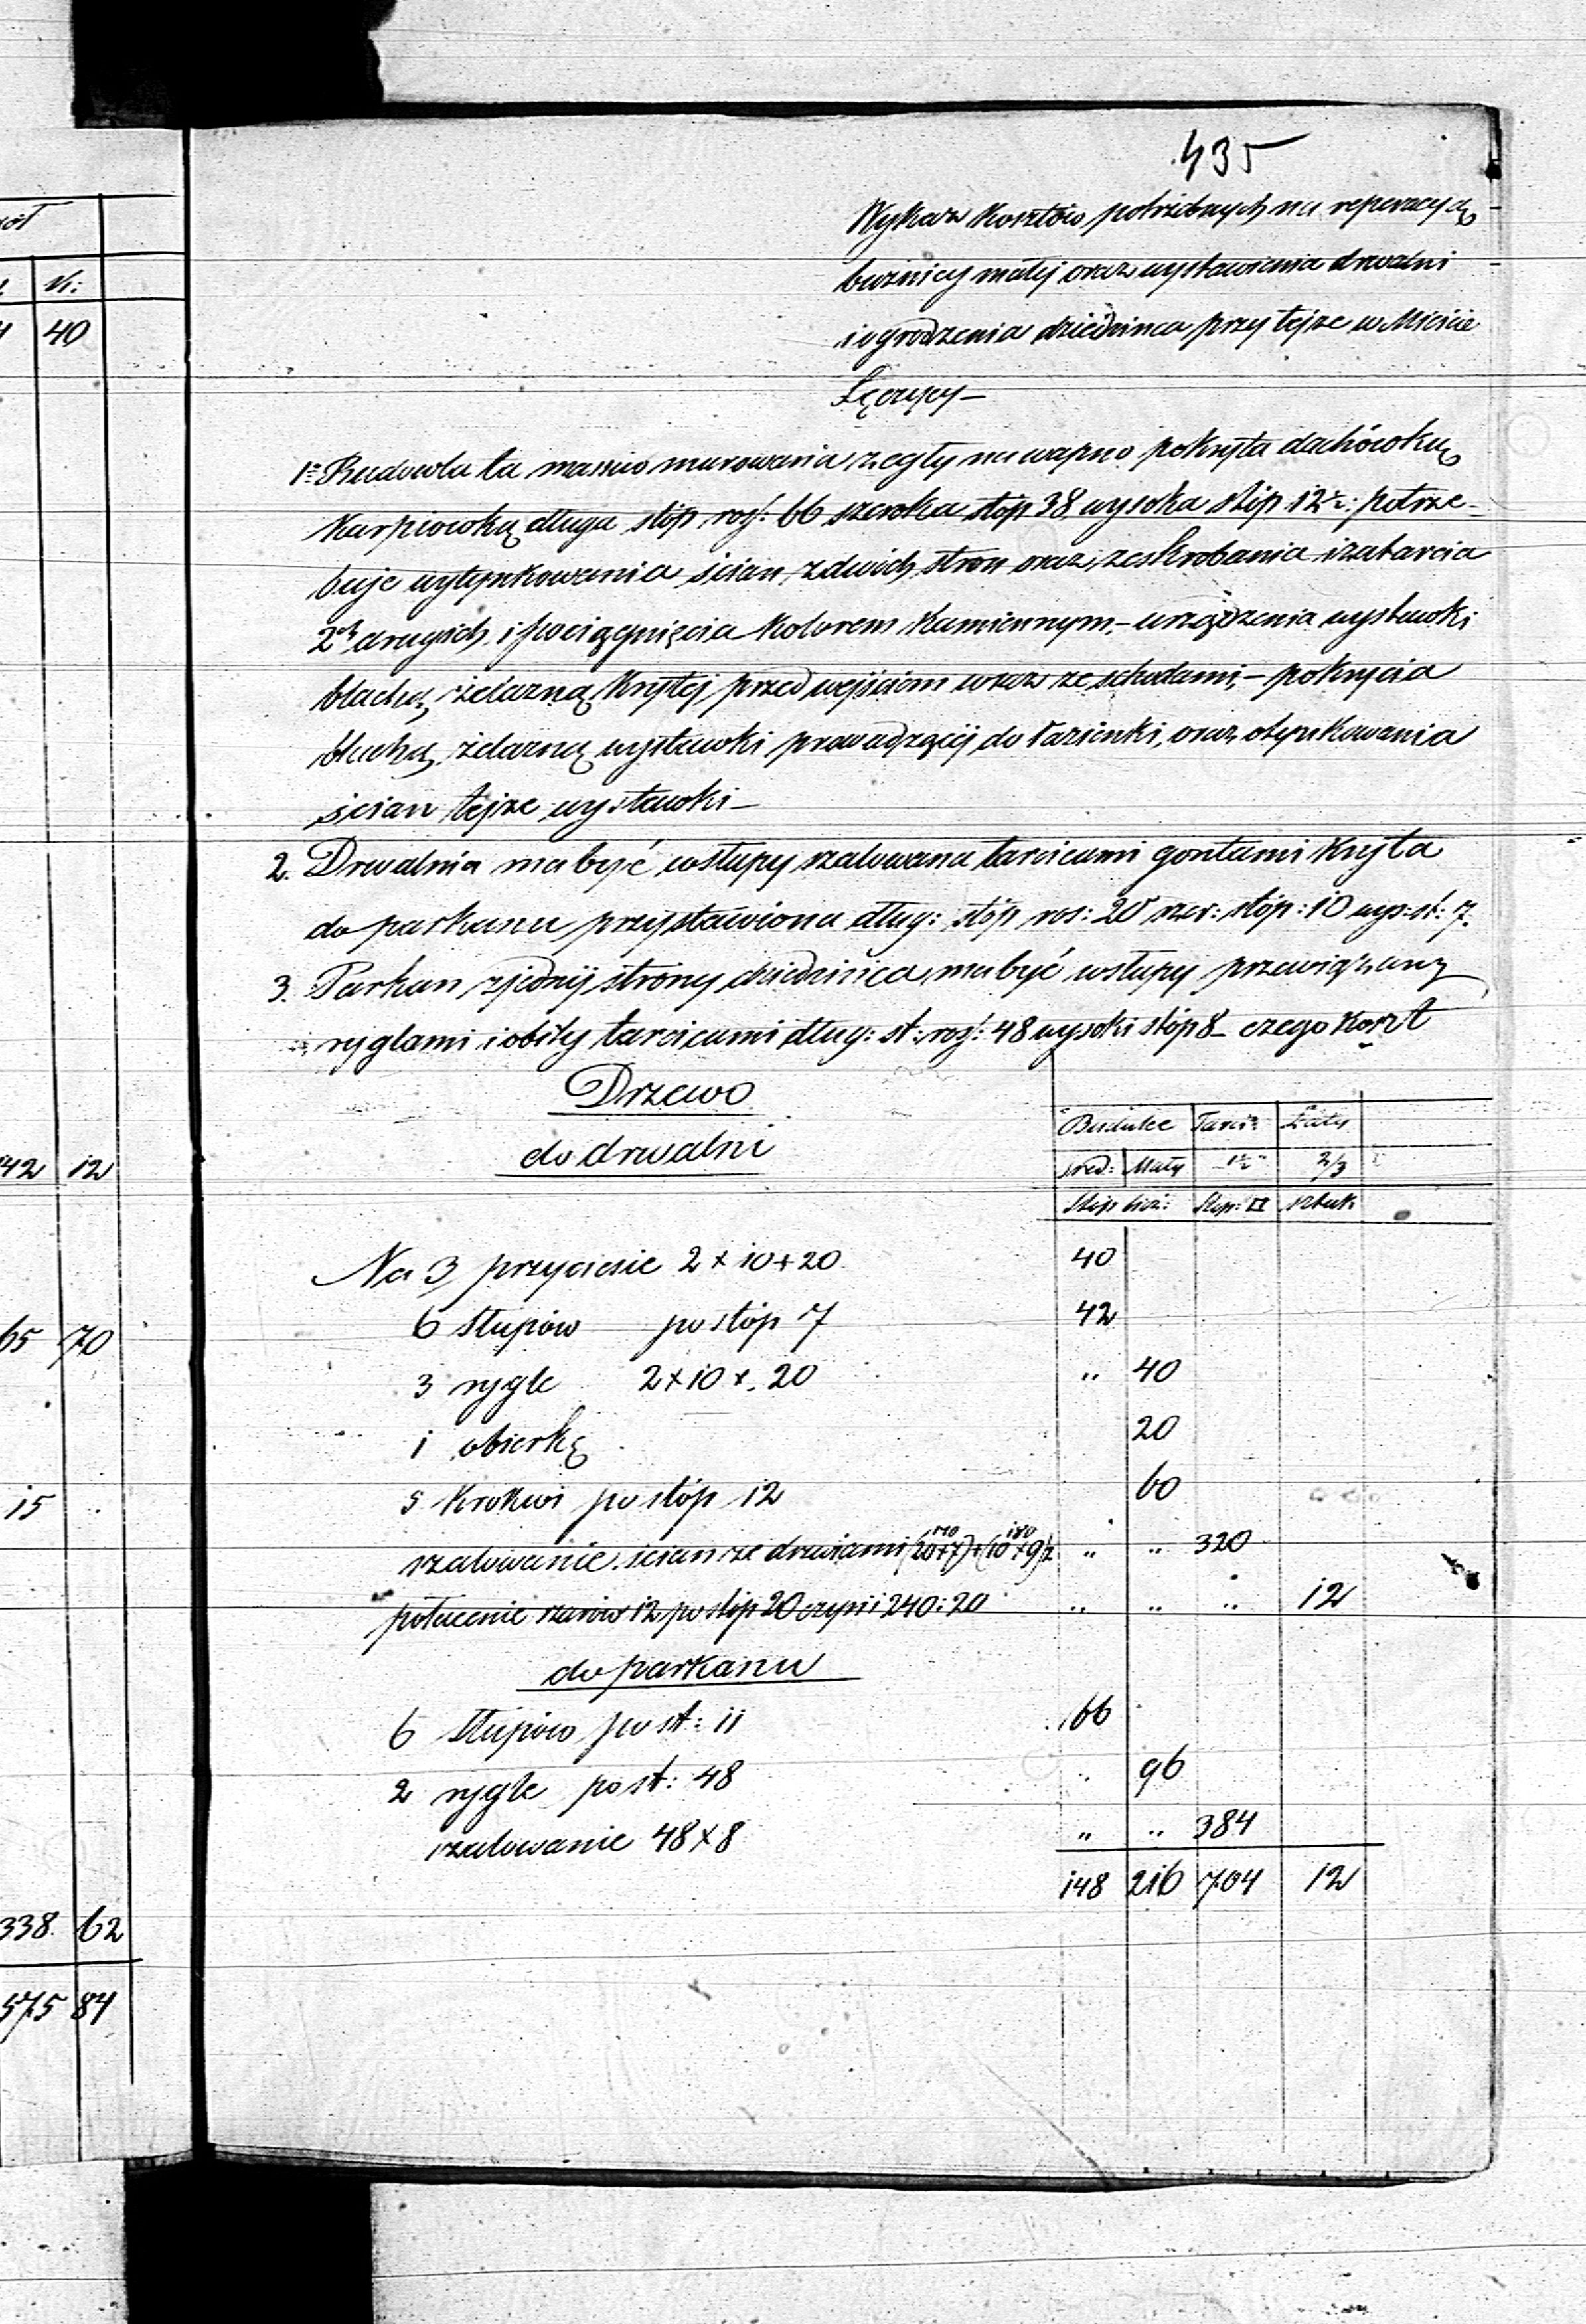 435
Wykaz Kosztów potrzebnych na reperacyą
bużnicy małej oraz wystawienia drwalni
i ogrodzenia dziedzinca przy tejze w Mieście
Łęczycy —
1= Budowla ta massiw murowana z cegły na wapno pokryta dachówką
Karpiówką długa stóp ros: 66 szeroka stop 38 wysoka stóp 12½: potrze-
buje wytynkowania ścian z dwóch stron oraz zeskrobania i zatarcia
2ch drugich i pociągnięcia Kolorem Kamiennym, – urządzenia wystawki
blachą żelazną Krytej przed wejściem wraz ze schodami, – pokrycia
blachą żelazną wystawki prowadzącej do łazienki, oraz otynkowania
ścian tejze wystawki –
2. Drwalnia ma być w słupy szalowana tarcicami gontami Kryta
do parkanu przystawiona dług: stóp ros: 20 szer: stóp: 10 wys: st: 7.
3. Parkan z jednej strony dziedzińca ma być w słupy przewiązany
ryglami i obity tarcicami dług: st: ros: 48 wysoki stóp 8 – czego Koszt
Drzewo
do drwalni
Budulec Tarcic Łaty
śred: Mały 1½" 2/3
Stóp bież: Stop: □ sztuk
Na 3 przyciesie 2 × 10 + 20 40
6 słupów po stóp 7 42
3 rygle 2 × 10 × 20 " 40
1 obierkę 20
5 Krokwi po stóp 12 60
szalowanie ścian ze drzwiami (20+7)+(10+9)2 " " 320
140 180
połacenie szarów 12 po stóp 20 czyni 240:20 " " " 12
do parkanu
6 słupów po st: 11 66
2 rygle po st: 48 96
szalowanie 48 × 8 " " 384
148 216 704 12
K:
40
42 12
65 70
15
338 62
575 84